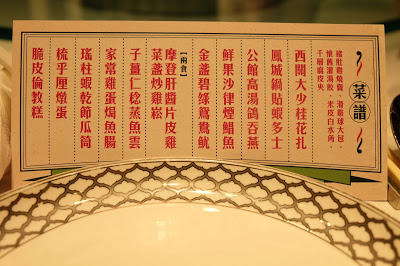 菜譜
豬肚雞燒賣、滑雞球大包、
懷舊灌湯餃、米皮白水角、
千層腐皮夾。
西關大少桂花扎
鳳城鍋貼蝦多士
公館高湯鴿吞燕
鮮果沙律煙鯧魚
金盞碧綠鴛鴦魷
【南食】
摩登肝醬片皮雞
菜盞炒雞崧
子薑仁稔蒸魚雲
家常雞蛋焗魚腸
瑤柱蝦乾節瓜筒
梳乎厘燉蛋
脆皮倫教糕